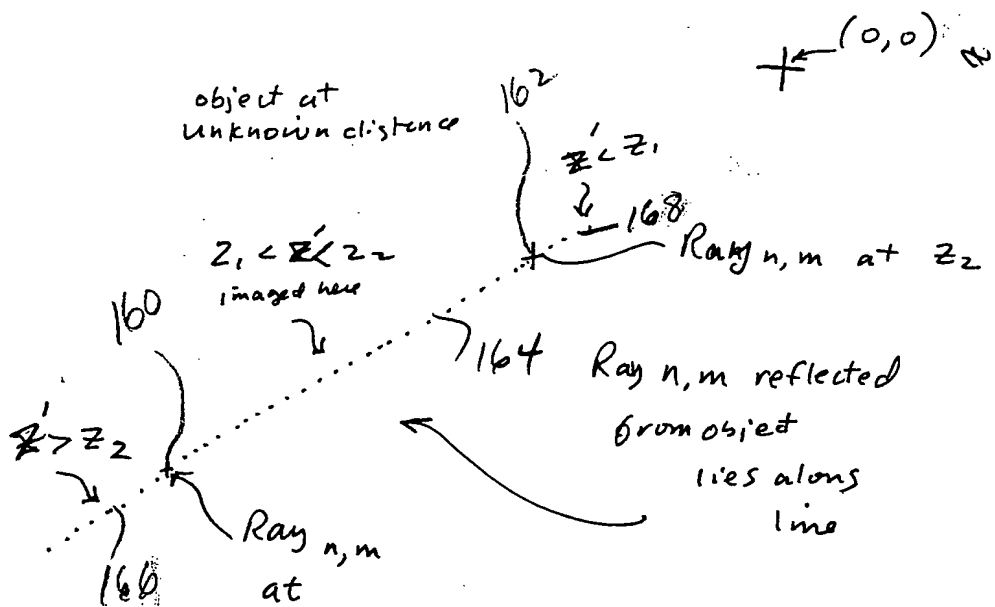 (0,0)
object at
unknown distence
162
z' < z1
168
Ray n,m at z2
z1 < z' < z2
imaged here
160
164
Ray n,m reflected
from object
lies along
line
z' > z2
Ray n,m
at
166